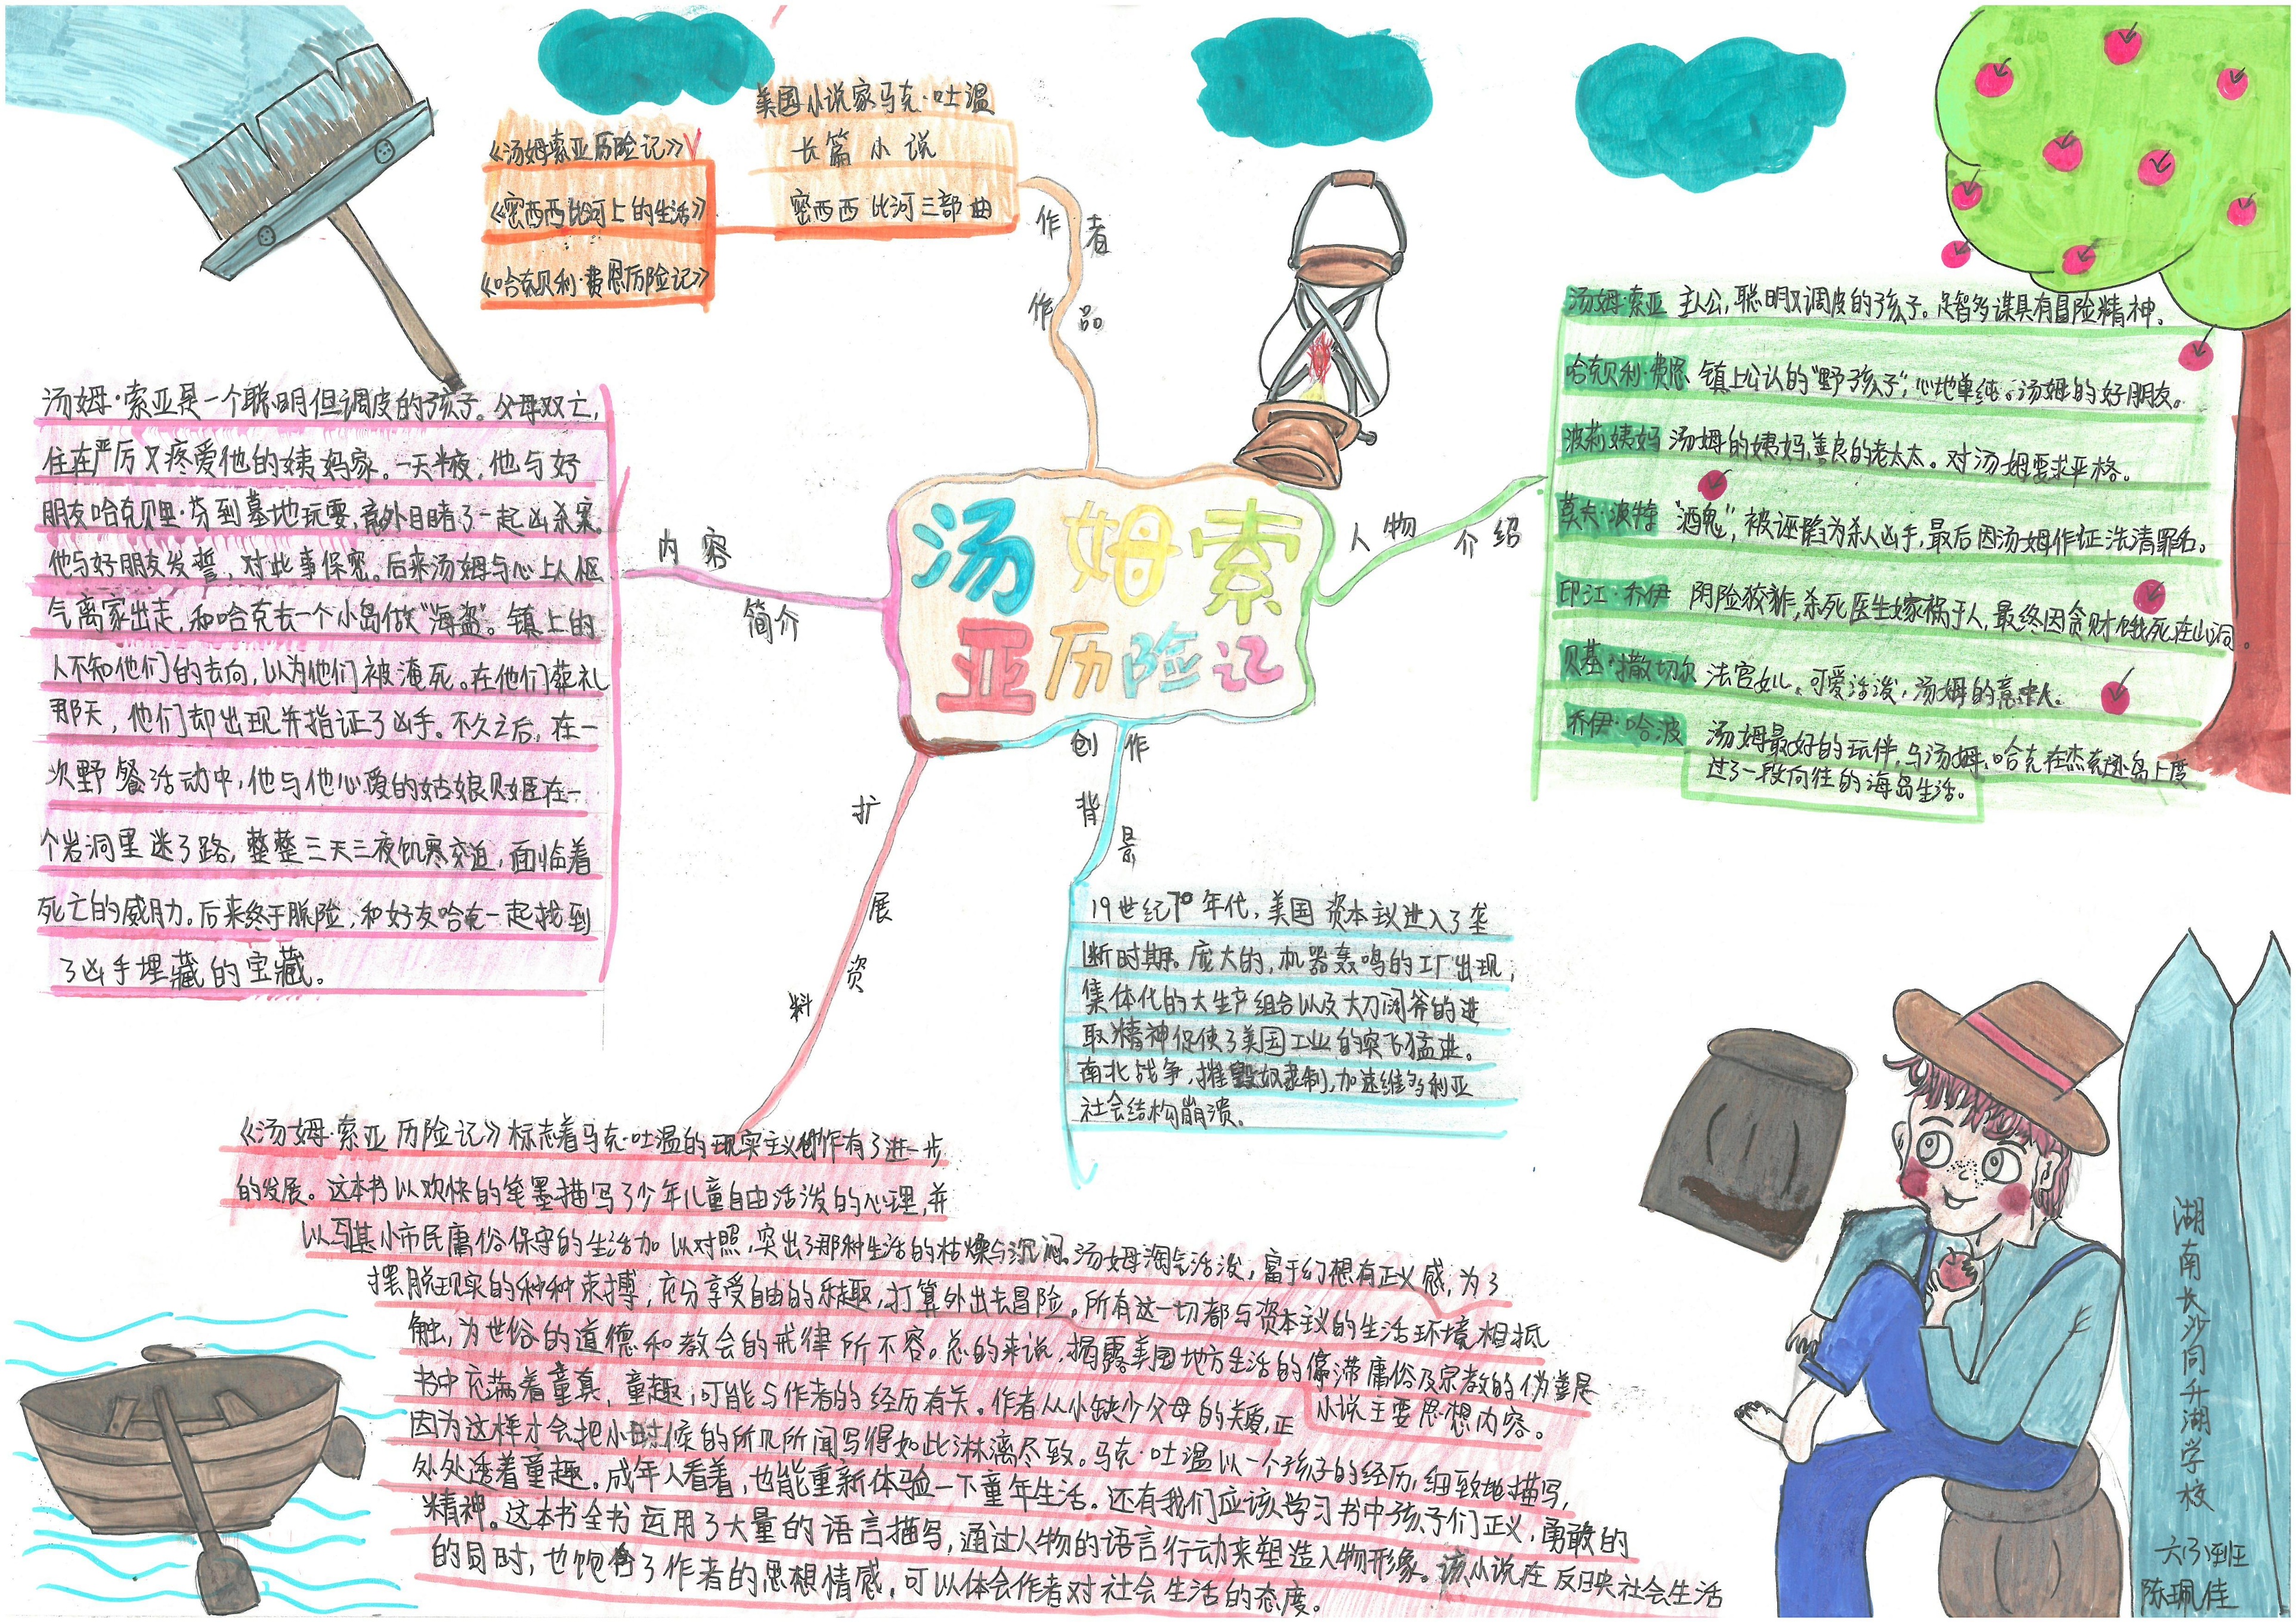 美国小说家马克·吐温
长篇小说
密西西比河三部曲
《汤姆索亚历险记》
《密西西比河上的生活》
《哈克贝利·费恩历险记》
作者
作品
汤姆索
亚历险记
内容
简介
汤姆·索亚是一个聪明但调皮的孩子。父母双亡,
住在严厉又疼爱他的姨妈家。一天半夜,他与好
朋友哈克贝里·芬到墓地玩耍,意外目睹了一起凶杀案。
他与好朋友发誓,对此事保密。后来汤姆与心上人怄
气离家出走,和哈克去一个小岛做“海盗”。镇上的
人不知他们的去向,以为他们被淹死。在他们葬礼
那天,他们却出现并指证了凶手。不久之后,在一
次野餐活动中,他与他心爱的姑娘贝姬在一
个岩洞里迷了路,整整三天三夜饥寒交迫,面临着
死亡的威力。后来终于脱险,和好友哈克一起找到
了凶手埋藏的宝藏。
人物
介绍
汤姆·索亚 主人公,聪明又调皮的孩子。足智多谋具有冒险精神。
哈克贝利·费恩 镇上公认的“野孩子”,心地单纯。汤姆的好朋友。
波莉姨妈 汤姆的姨妈,善良的老太太。对汤姆要求严格。
莫夫·波特 “酒鬼”,被诬陷为杀人凶手,最后因汤姆作证洗清罪名。
印江·乔伊 阴险狡诈,杀死医生嫁祸于人,最终因贪财饿死在山洞。
贝基·撒切尔 法官女儿。可爱活泼,汤姆的意中人。
乔伊·哈波 汤姆最好的玩伴,与汤姆、哈克在杰克逊岛上度
过了一段向往的海岛生活。
创作
背景
19世纪70年代,美国资本主义进入了垄
断时期。庞大的,机器轰鸣的工厂出现,
集体化的大生产组合以及大刀阔斧的进
取精神促使了美国工业的突飞猛进。
南北战争,摧毁奴隶制,加速维多利亚
社会结构崩溃。
扩展资料
《汤姆·索亚历险记》标志着马克·吐温的现实主义创作有了进一步
的发展。这本书以欢快的笔墨描写了少年儿童自由活泼的心理,并
以与其小市民庸俗保守的生活加以对照,突出了那种生活的枯燥与沉闷。汤姆淘气活泼,富于幻想有正义感,为了
摆脱现实的种种束搏,充分享受自由的乐趣,打算外出去冒险。所有这一切都与资本主义的生活环境相抵
触,为世俗的道德和教会的戒律所不容。总的来说,揭露美国地方生活的停滞庸俗及宗教的伪善是
小说主要思想内容。
书中充满着童真,童趣,可能与作者的经历有关。作者从小缺少父母的关爱,正
因为这样才会把小时候的所见所闻写得如此淋漓尽致。马克·吐温以一个孩子的经历,细致地描写,
处处透着童趣。成年人看着,也能重新体验一下童年生活。还有我们应该学习书中孩子们正义,勇敢的
精神。这本书全书运用了大量的语言描写,通过人物的语言行动来塑造人物形象。该小说在反映社会生活
的同时,也饱含了作者的思想情感,可以体会作者对社会生活的态度。
湖南长沙同升湖学校
陈珮佳